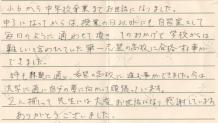 小6から中学校卒業までお世話になりました。
中3になってからは、授業の日以外にも自習室として
毎日のように通わせて頂き、そのおかげで学校からは
難しいと言われていた第一志望の高校に合格する事が
できました。
姉も無事に、希望の高校に進む事ができました。今は
大学に通い自分の夢に向かって頑張っています。
2人揃って先生には大変お世話になり感謝しています。
ありがとうございました。